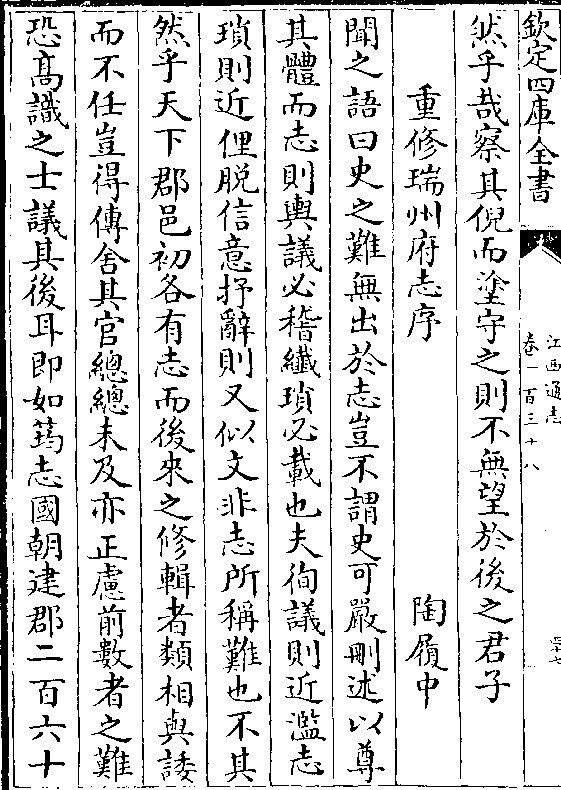 欽定四庫全書
江西通志
卷一百三十八
四十七
然乎哉察其倪而塗守之則不無望於後之君子
重修瑞州府志序
陶履中
聞之語曰史之難無出於志豈不謂史可嚴刪述以尊
其體而志則輿議必稽纖瑣必載也夫徇議則近濫志
瑣則近俚脱信意抒辭則又似文非志所稱難也不其
然乎天下郡邑初各有志而後來之修輯者類相與諉
而不任豈得傳舍其官總總未及亦正慮前數者之難
恐髙識之士議其後耳即如筠志國朝建郡二百六十